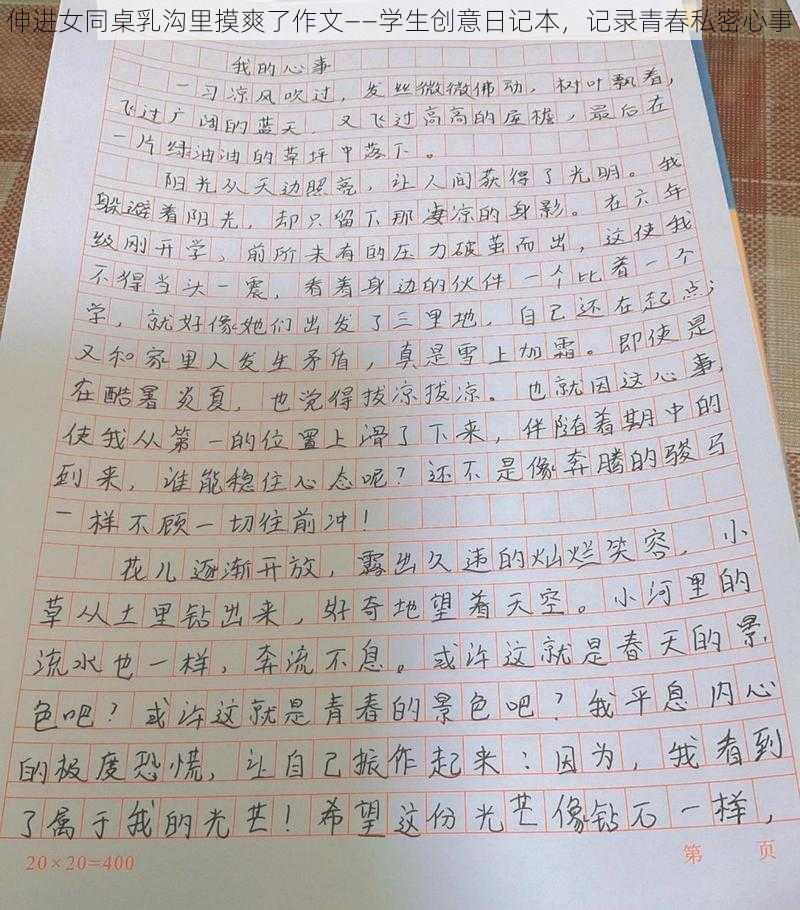 我的心事
一习凉风吹过，发丝微微佛动，树叶飘着，
飞过广阔的蓝天，又飞过高高的屋檐，最后在
一片绿油油的草坪中落下。
阳光从天边照亮，让人间获得了光明。我
躲避着阳光，却只留下那凄凉的身影。在六年
级刚开学，前所未有的压力破茧而出，这使我
不得当头一震，看着身边的伙伴一个比着一个
学，就好像她们出发了三里地，自己还在起点；
又和家里人发生矛盾，真是雪上加霜。即使是
在酷暑炎夏，也觉得拔凉拔凉。也就因这心事，
使我从第一的位置上滑了下来，伴随着期中的
到来，谁能稳住心态呢？还不是像奔腾的骏马
一样不顾一切往前冲！
花儿逐渐开放，露出久违的灿烂笑容，小
草从土里钻出来，好奇地望着天空。小河里的
流水也一样，奔流不息。或许这就是春天的景
色吧？或许这就是青春的景色吧？我平息内心
的极度恐慌，让自己振作起来：因为，我看到
了属于我的光芒！希望这份光芒像钻石一样，
20×20=400
第 页